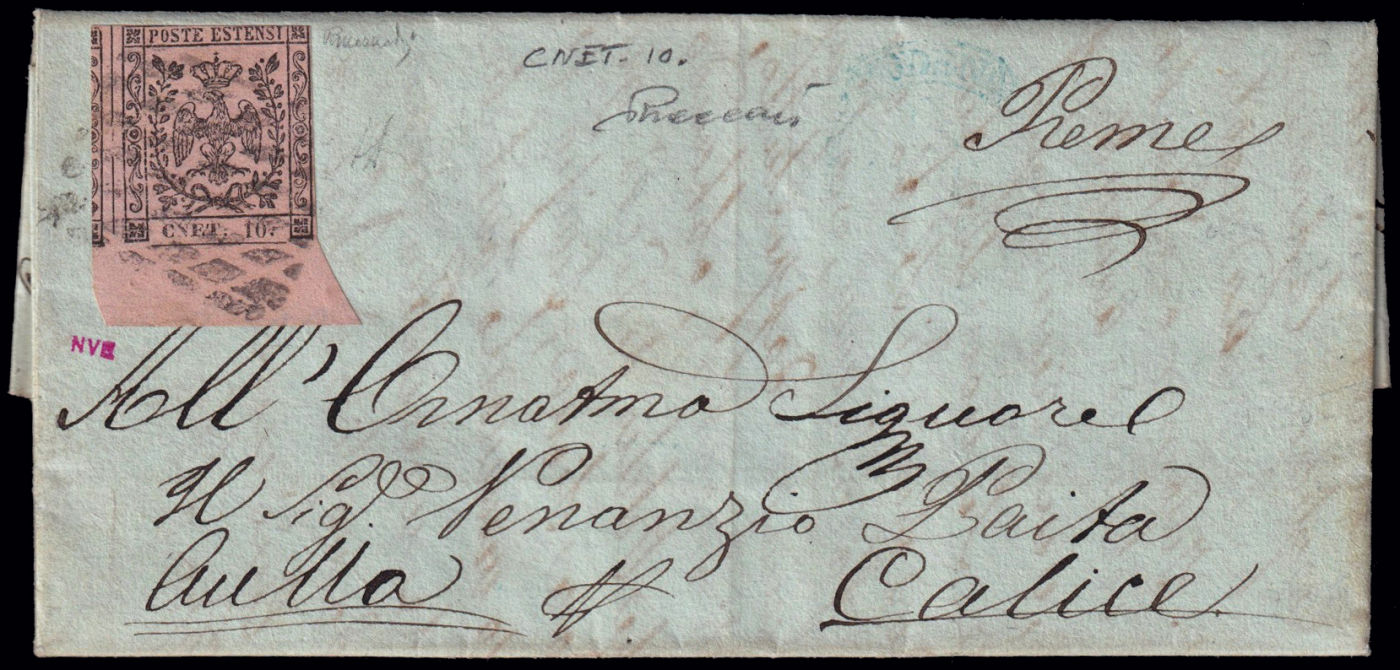 POSTE ESTENSI
CNET. 10.
CNET. 10.
Preme
NVE
All' Ornatmo Signore
Il Sig. Venanzio Paita
Aulla Calice